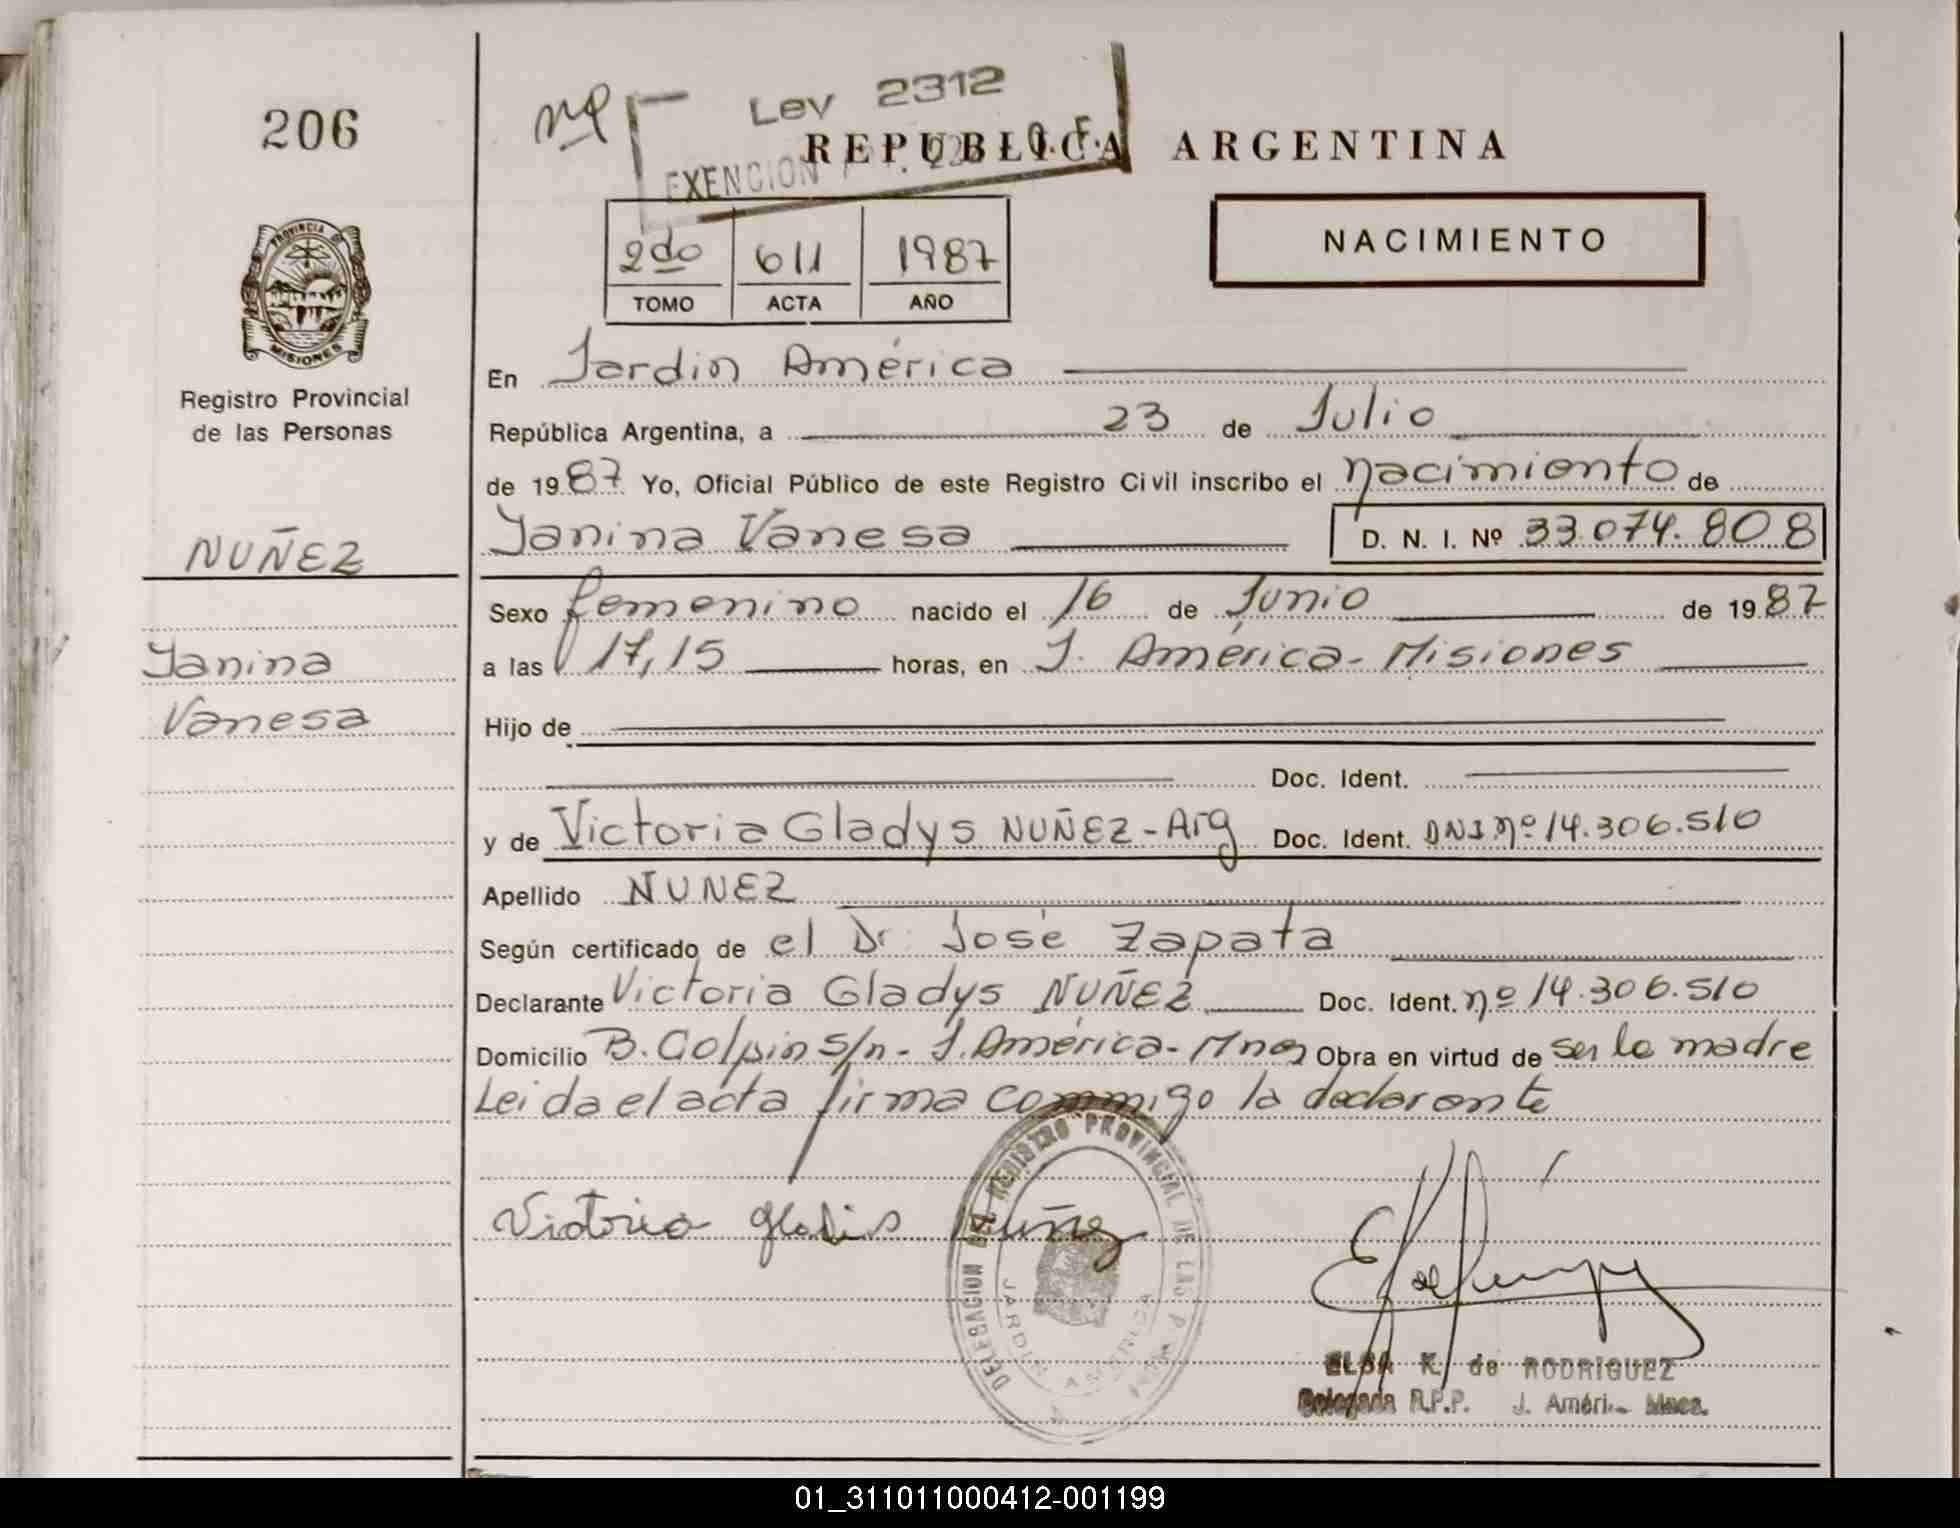 206
Ley 2312
EXENCION
REPUBLICA ARGENTINA
NACIMIENTO
2do 611 1987
TOMO ACTA AÑO
PROVINCIA DE
MISIONES
Registro Provincial
de las Personas
En Jardin América
República Argentina, a 23 de Julio
de 1987 Yo, Oficial Público de este Registro Civil inscribo el nacimiento de
NUÑEZ
Yanina Vanesa D. N. I. Nº 33.074.808
Sexo femenino nacido el 16 de Junio de 1987
Yanina
a las 17,15 horas, en J. América - Misiones
Vanesa
Hijo de
Doc. Ident.
y de Victoria Gladys NUÑEZ - Arg Doc. Ident. DNI nº 14.306.510
Apellido NUNEZ
Según certificado de el Dr. José Zapata
Declarante Victoria Gladys NUÑEZ Doc. Ident. nº 14.306.510
Domicilio B. Golpin s/n - J. América - Mnes Obra en virtud de ser la madre
Leida el acta firma commigo la declarante
Victoria Gladis Nuñez
DELEGACION DEL REGISTRO PROVINCIAL DE LAS
JARDIN AMERICA
ELSA K. de RODRIGUEZ
Delegada R.P.P. J. Améri Mnes.
01_311011000412-001199